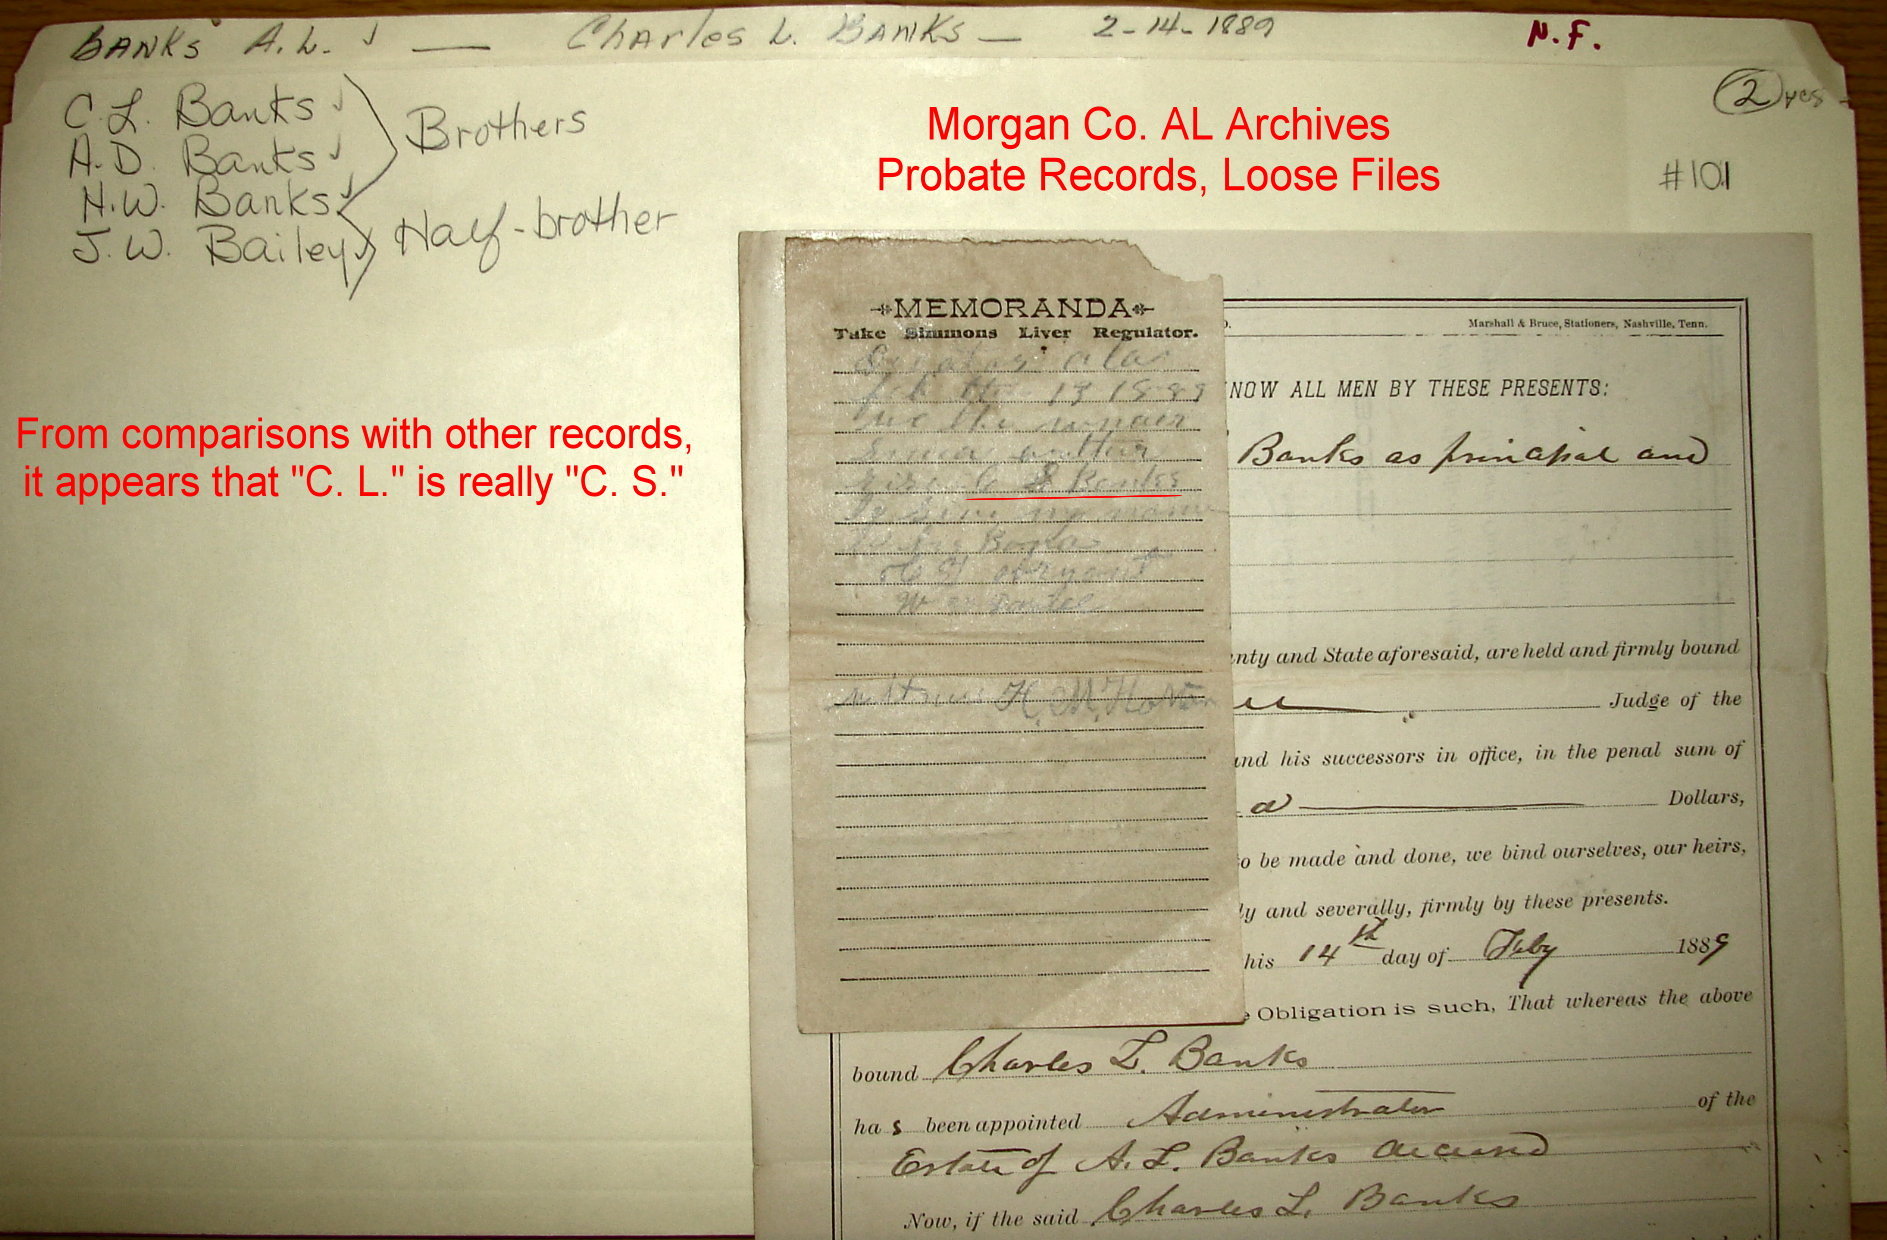 BANKS A. L. ✓ — Charles L. BANKS — 2-14-1889 N.F.
C. L. Banks ✓
A. D. Banks ✓
H. W. Banks ✓
J. W. Bailey ✓
Brothers
Half-brother
Morgan Co. AL Archives
Probate Records, Loose Files
2 yes
#101
From comparisons with other records,
it appears that "C. L." is really "C. S."
MEMORANDA
Take Simmons Liver Regulator.
13 1889
we the
brother
C S Banks
my name
W
H. M.
Marshall & Bruce, Stationers, Nashville, Tenn.
NOW ALL MEN BY THESE PRESENTS:
Banks as principal and
nty and State aforesaid, are held and firmly bound
Judge of the
and his successors in office, in the penal sum of
Dollars,
o be made and done, we bind ourselves, our heirs,
ly and severally, firmly by these presents.
his 14th day of Feby 1889
e Obligation is such, That whereas the above
bound Charles L. Banks
has been appointed Administrator of the
Estate of A. L. Banks deceased
Now, if the said Charles L. Banks